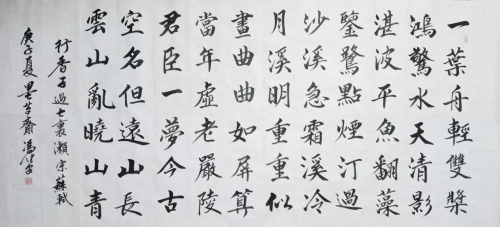 一葉舟輕雙槳
鴻驚水天清影
湛波平魚翻藻
鑒鷺點煙汀過
沙溪急霜溪冷
月溪明重重似
畫曲曲如屏算
當年虛老嚴陵
君臣一夢今古
空名但遠山長
雲山亂曉山青
行香子過七裏瀨宋蘇軾
庚子夏